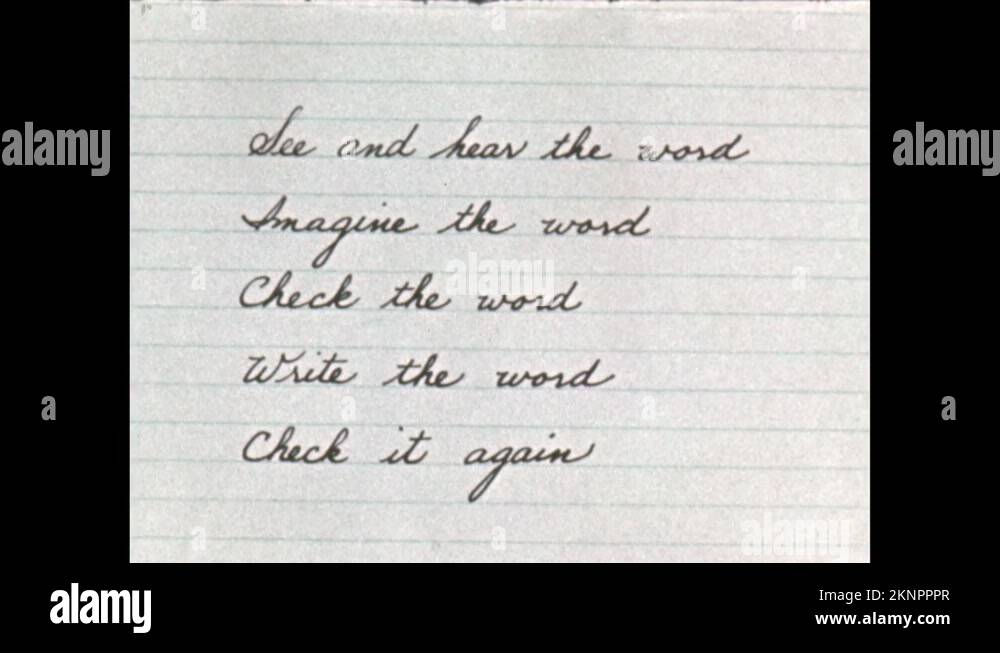 See and hear the word
Imagine the word
Check the word
Write the word
Check it again
alamy
alamy
alamy
alamy
a
a
alamy
Image ID: 2KNPPPR
www.alamy.com